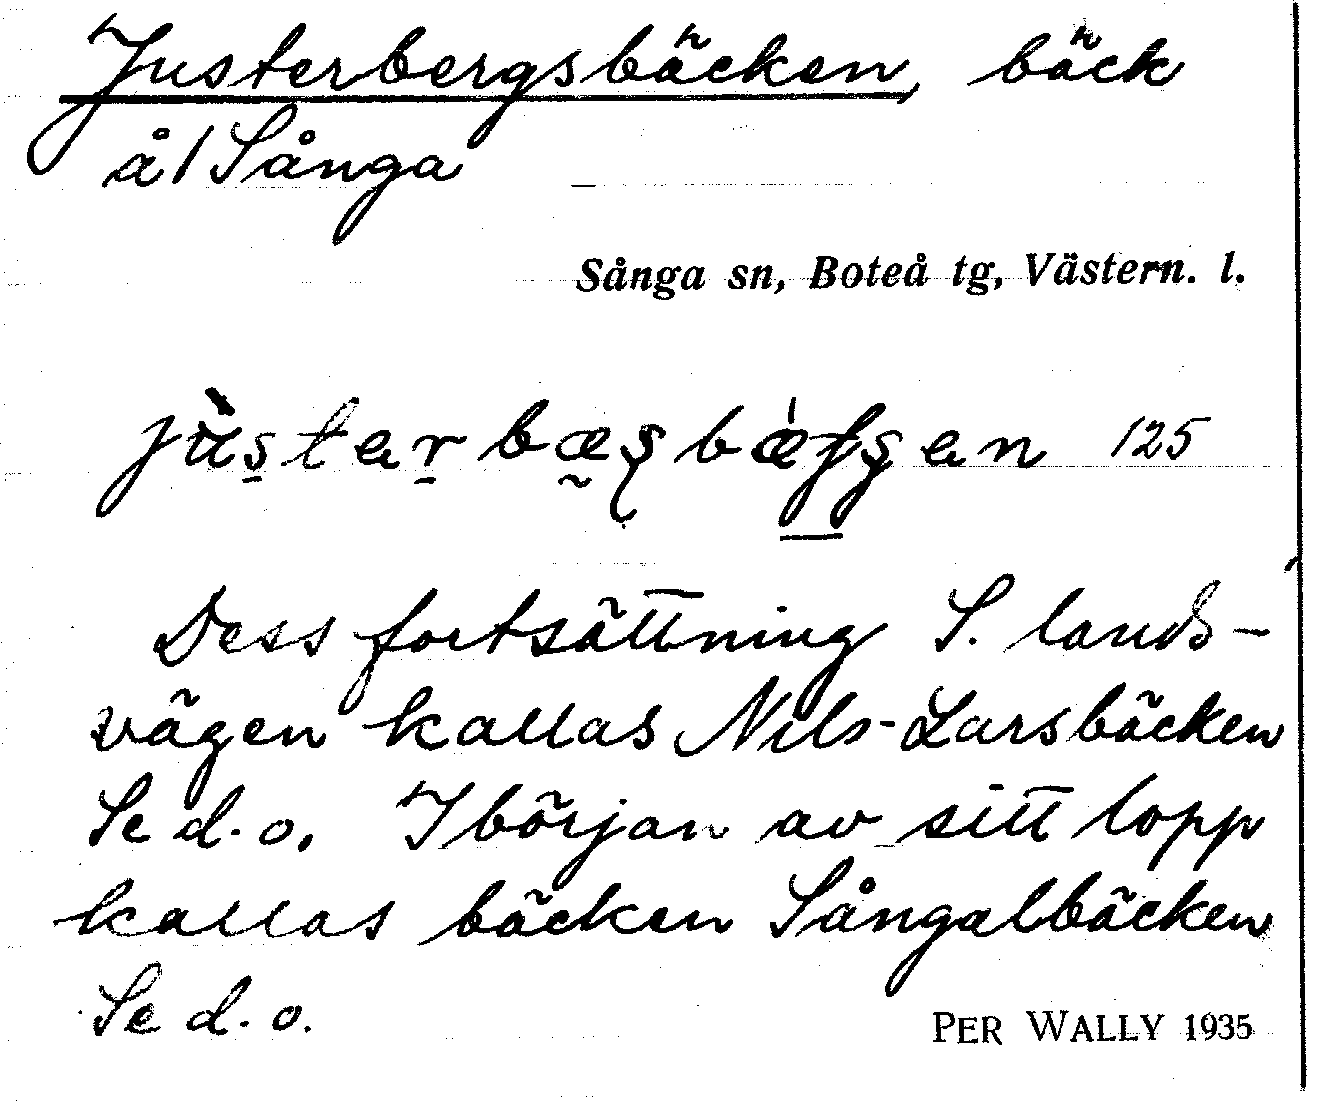 Justerbergsbäcken, bäck
å/Sånga
Sånga sn, Boteå tg, Västern. l.
125
Dess fortsättning S. lands-
vägen kallas Nils-Larsbäcken
Se d.o. I början av sitt lopp
kallas bäcken Sångalbäcken
Se d.o.
PER WALLY 1935